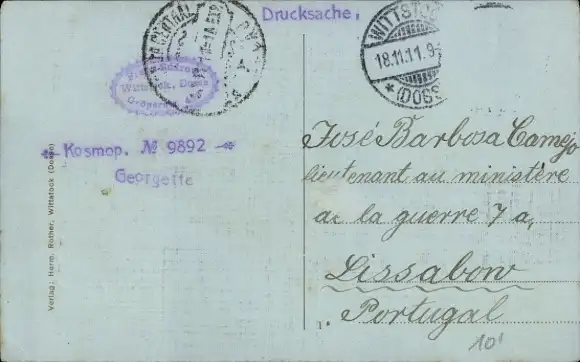 Drucksache.
WITTSTOCK
18.11.11.9-
* (DOSSE)
CENTRAL
Wittstock, Dosse
Kosmop. № 9892
Georgette
José Barbosa Camejo
lieutenant au ministère
de la guerre 7a,
Lissabon
Portugal
101
Verlag: Herm. Rother, Wittstock (Dosse)